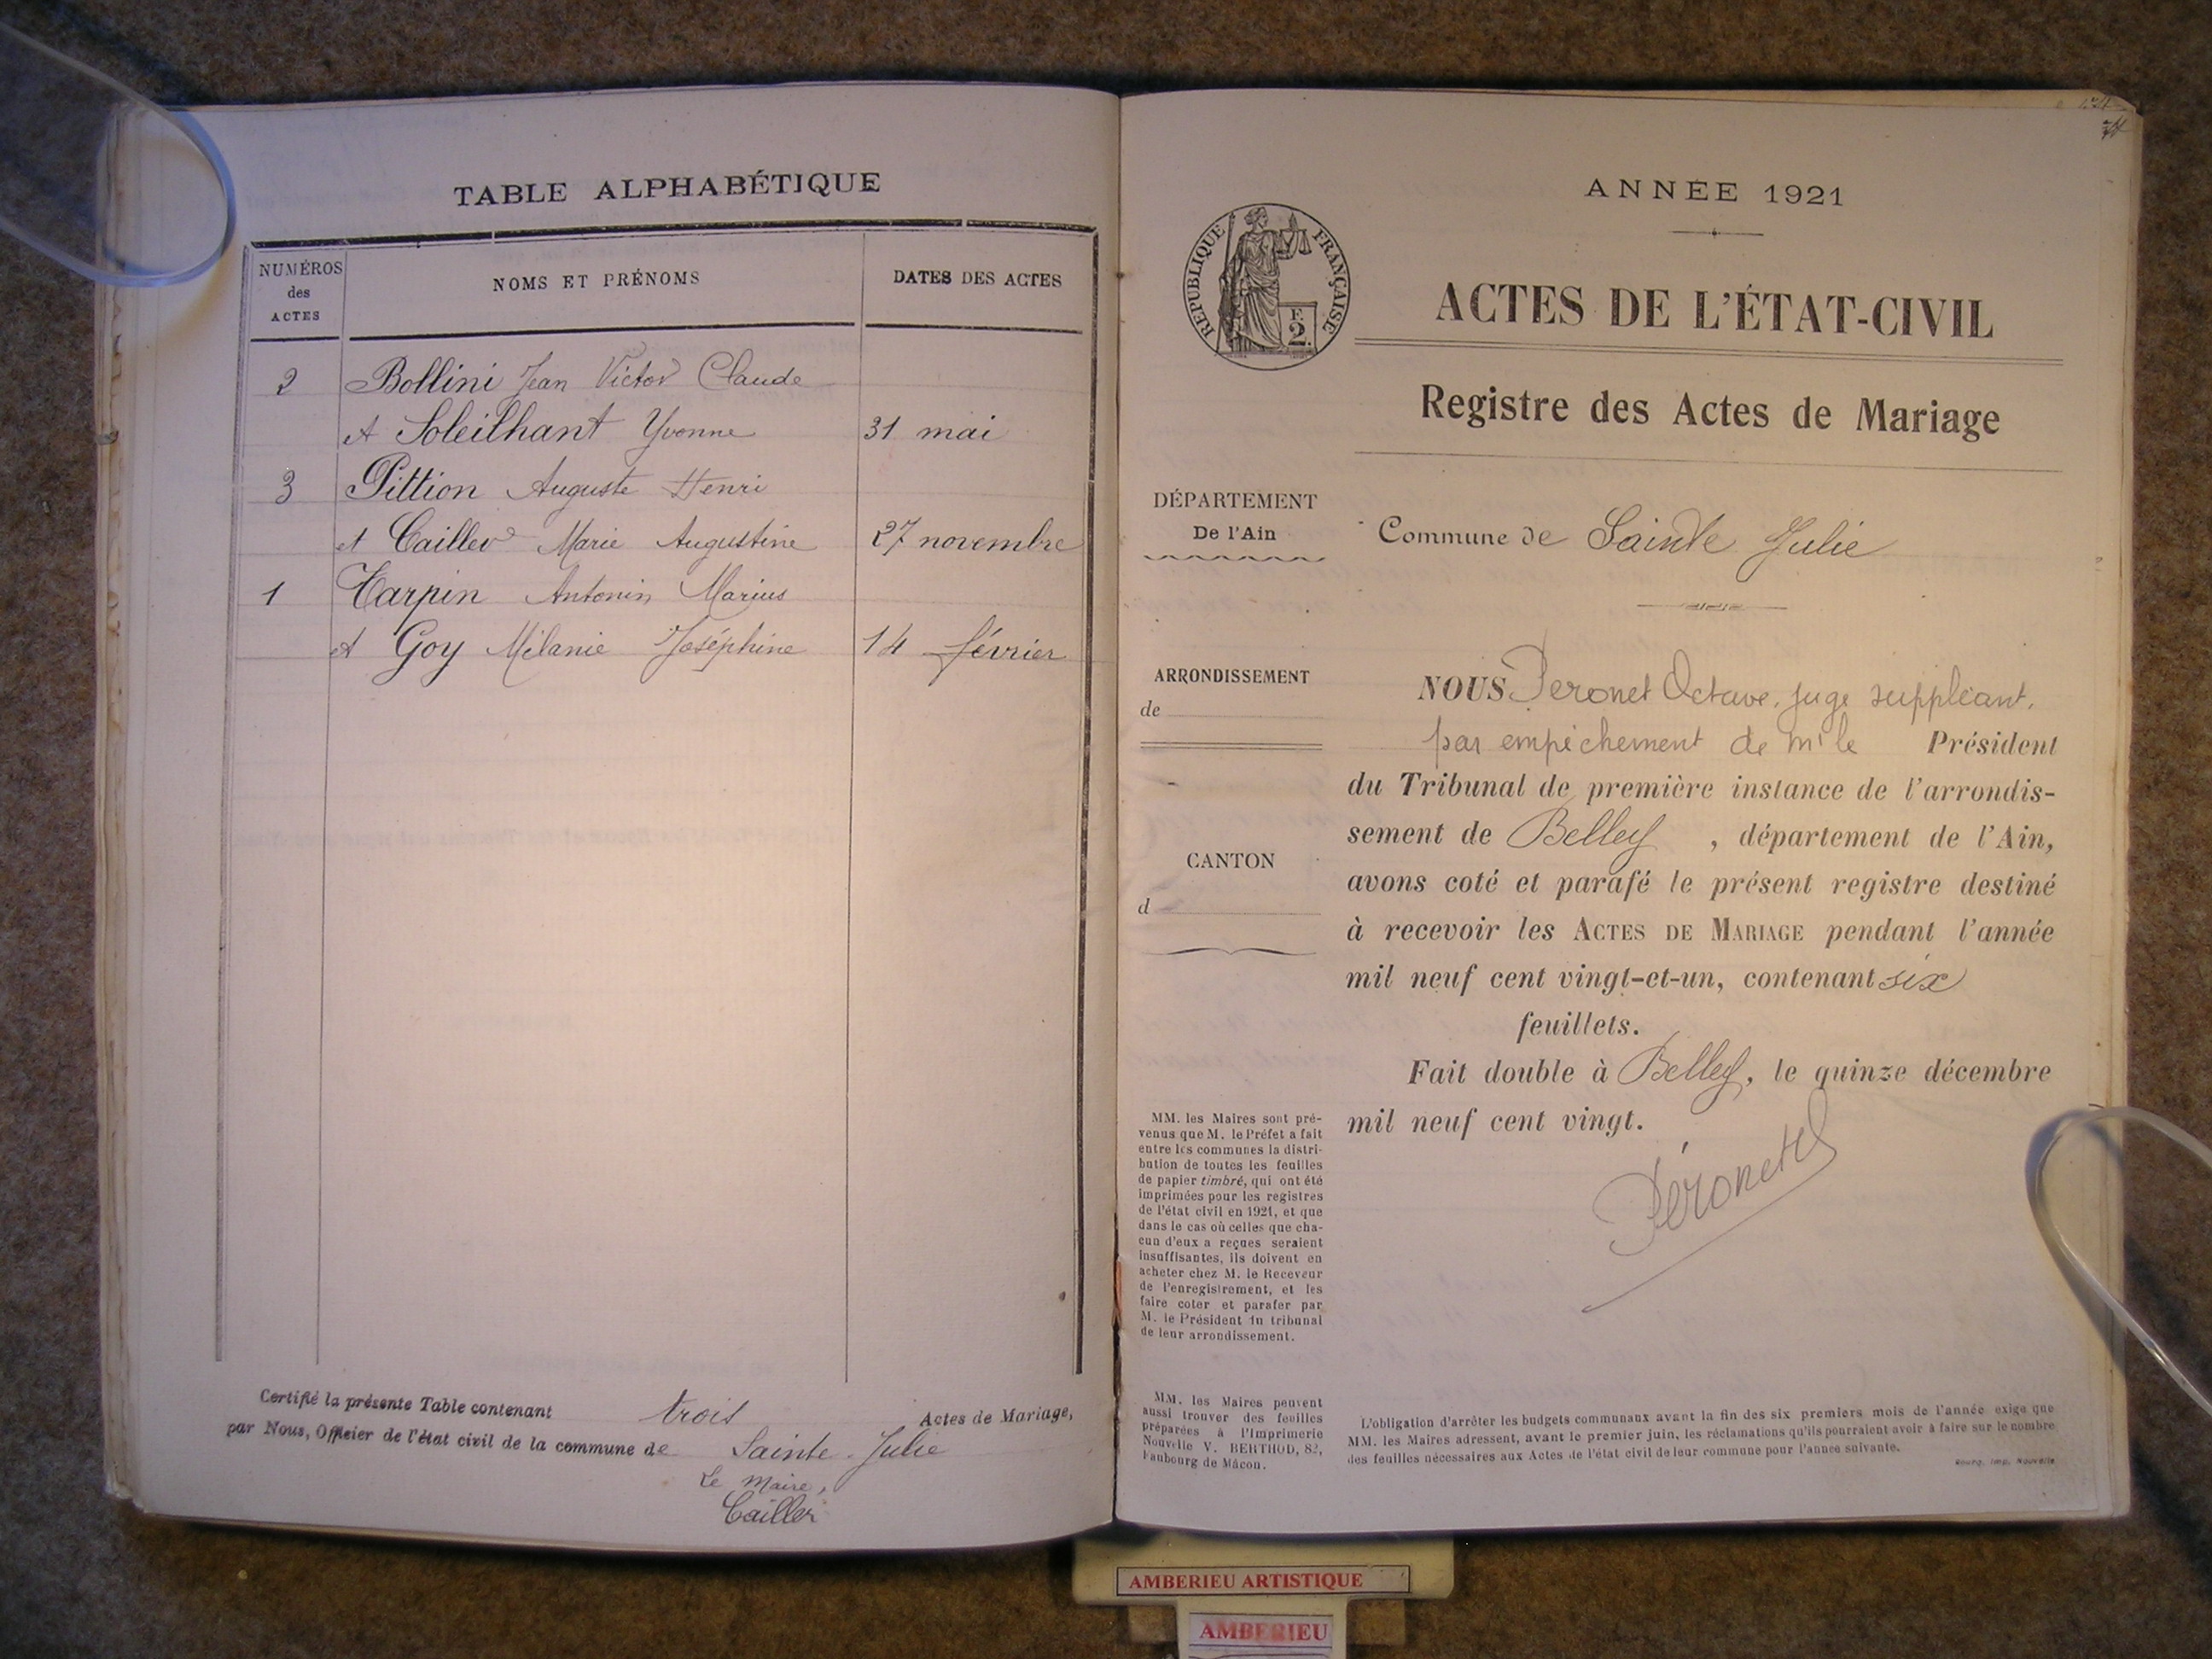 TABLE ALPHABÉTIQUE
NUMÉROS
des
ACTES
NOMS ET PRÉNOMS
DATES DES ACTES
2 Bollini Jean Victor Claude
et Soleilhant Yvonne 31 mai
3 Pittion Auguste Henri
et Cailler Marie Augustine 27 novembre
1 Tarpin Antonin Marius
et Goy Mélanie Joséphine 14 février
Certifié la présente Table contenant trois Actes de Mariage,
par Nous, Officier de l'état civil de la commune de Sainte-Julie
Le Maire,
Cailler
ANNÉE 1921
RÉPUBLIQUE FRANÇAISE
F.
2.
ACTES DE L'ÉTAT-CIVIL
Registre des Actes de Mariage
DÉPARTEMENT
De l'Ain
Commune de Sainte Julie
ARRONDISSEMENT
de
CANTON
d
NOUS Peronet Octave, juge suppléant,
par empêchement de Mr le Président
du Tribunal de première instance de l'arrondis-
sement de Belley, département de l'Ain,
avons coté et parafé le présent registre destiné
à recevoir les ACTES DE MARIAGE pendant l'année
mil neuf cent vingt-et-un, contenant six
feuillets.
Fait double à Belley, le quinze décembre
mil neuf cent vingt.
Péronet
MM. les Maires sont pré-
venus que M. le Préfet a fait
entre les communes la distri-
bution de toutes les feuilles
de papier timbré, qui ont été
imprimées pour les registres
de l'état civil en 1921, et que
dans le cas où celles que cha-
cun d'eux a reçues seraient
insuffisantes, ils doivent en
acheter chez M. le Receveur
de l'enregistrement, et les
faire coter et parafer par
M. le Président du tribunal
de leur arrondissement.
MM. les Maires peuvent
aussi trouver des feuilles
préparées à l'Imprimerie
Nouvelle V. BERTHOD, 82,
Faubourg de Mâcon.
L'obligation d'arrêter les budgets communaux avant la fin des six premiers mois de l'année exige que
MM. les Maires adressent, avant le premier juin, les réclamations qu'ils pourraient avoir à faire sur le nombre
des feuilles nécessaires aux Actes de l'état civil de leur commune pour l'année suivante.
Bourg, Imp. Nouvelle
AMBERIEU ARTISTIQUE
AMBERIEU